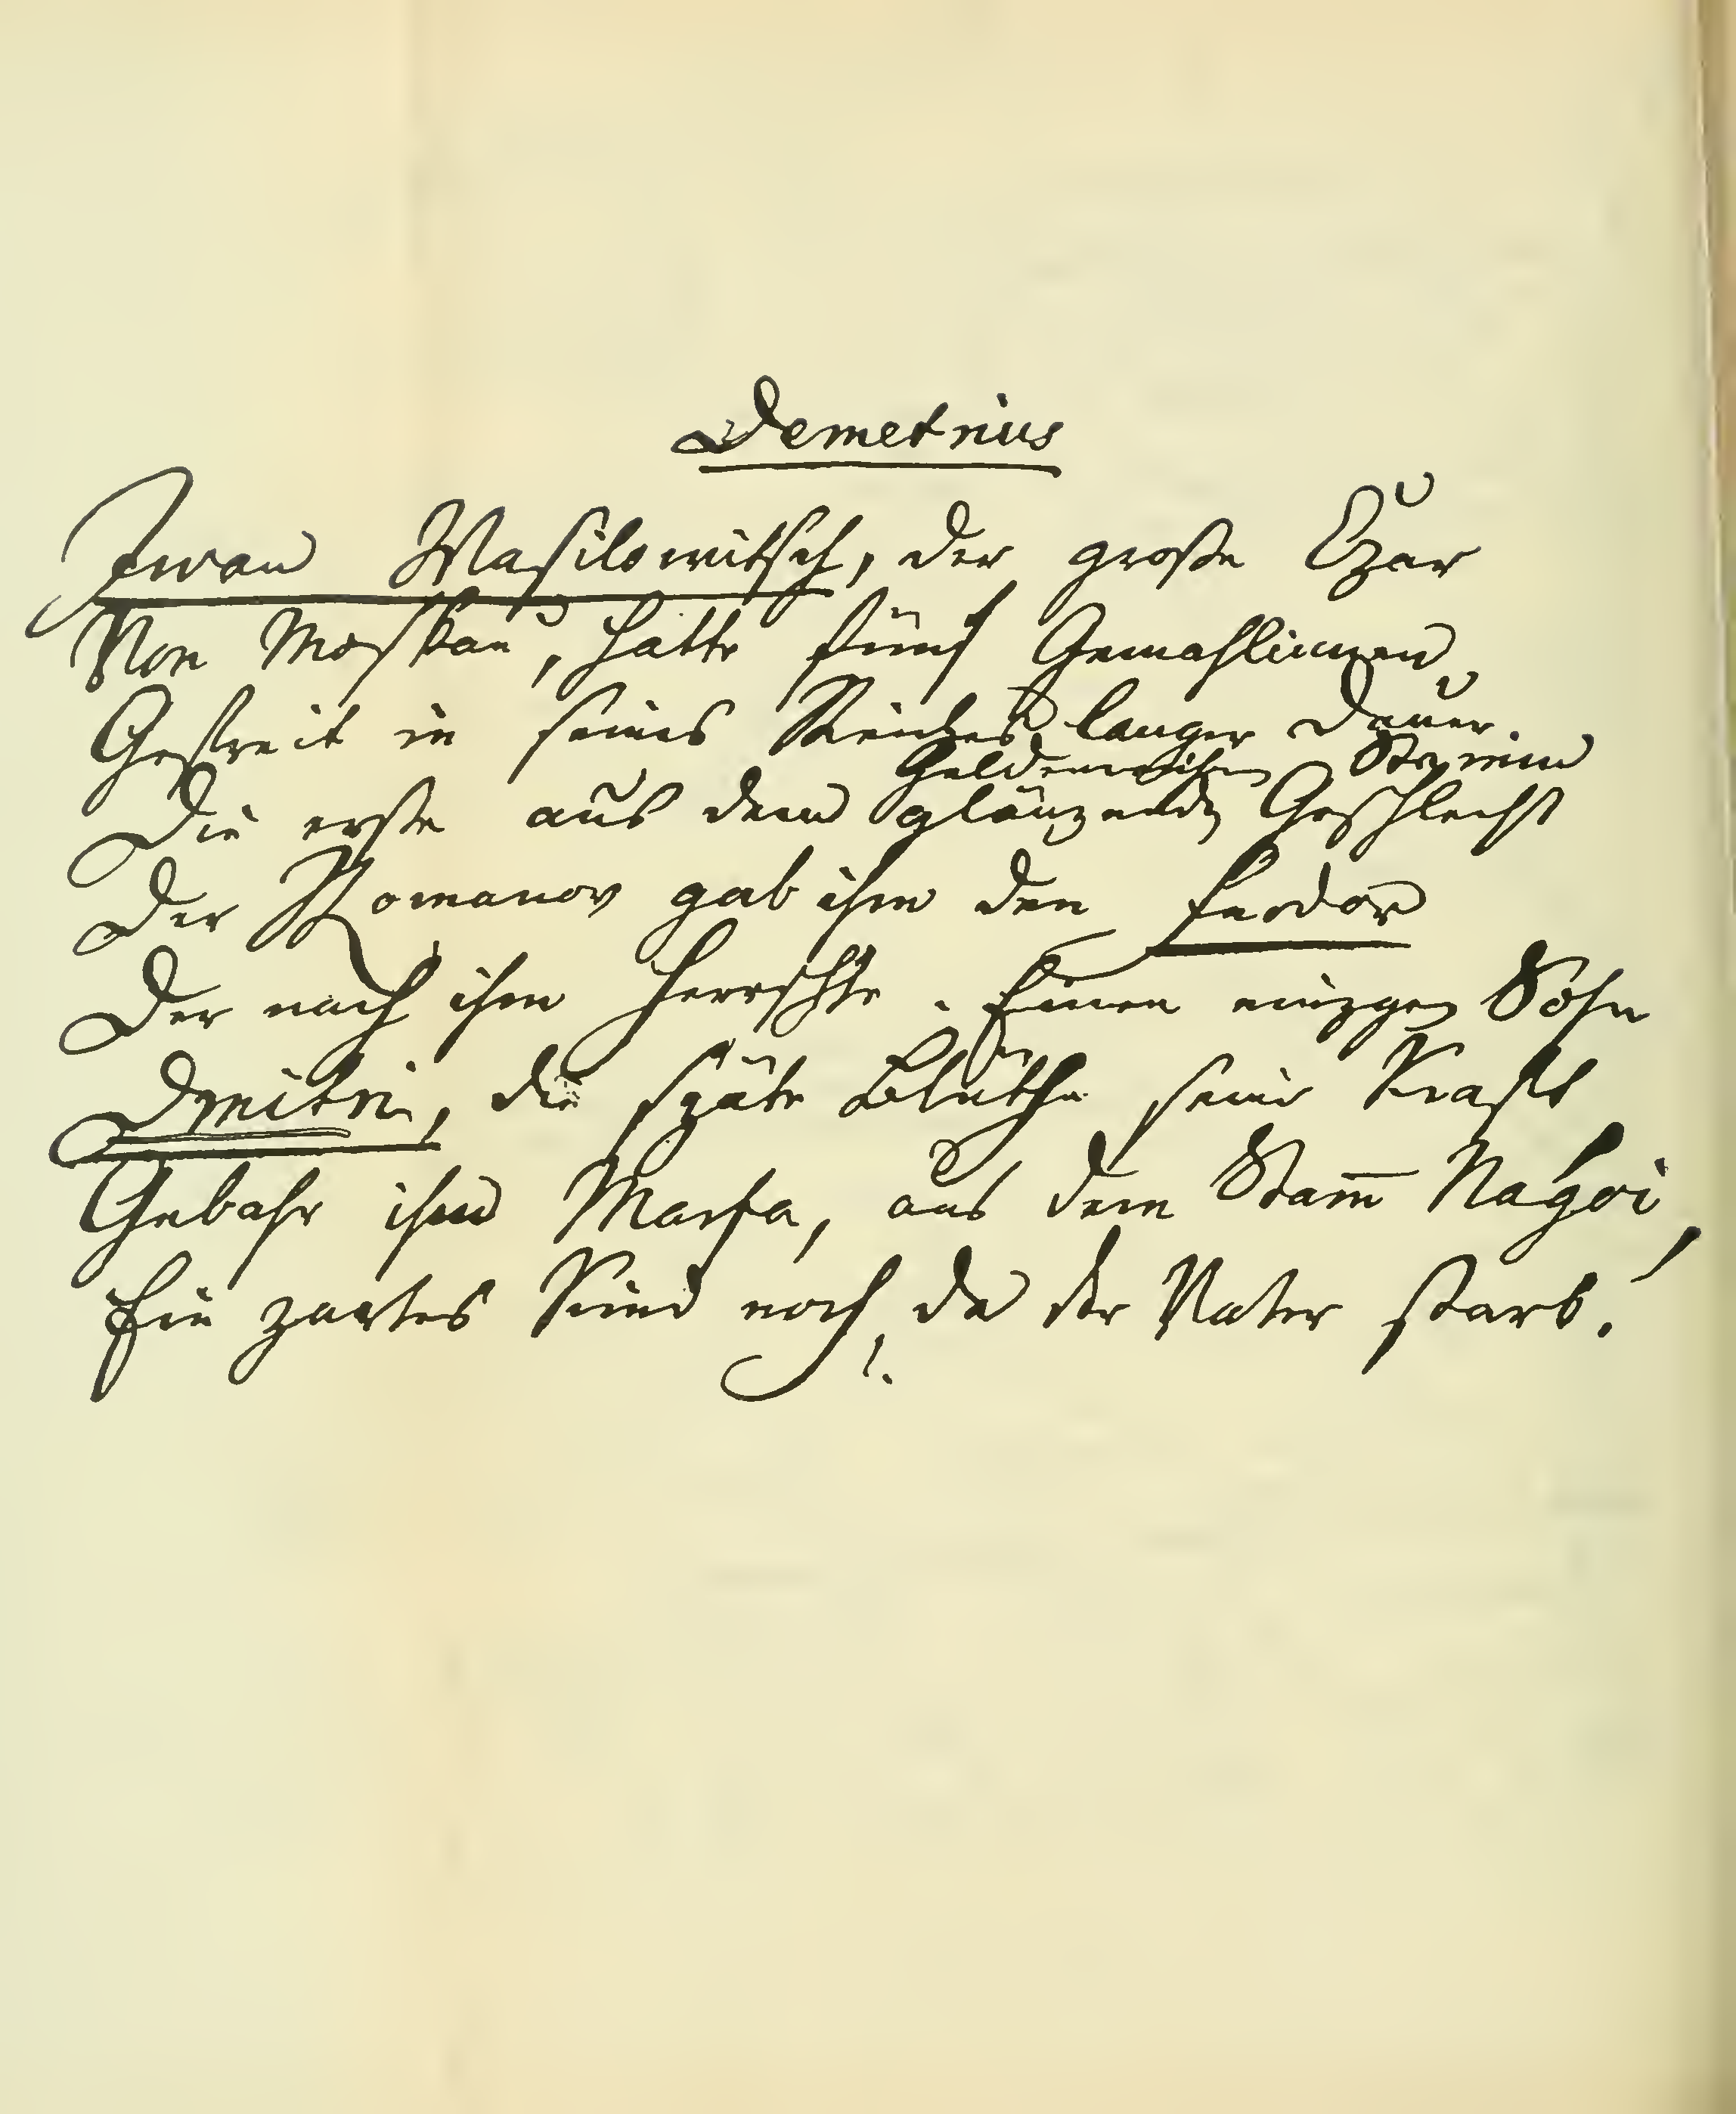 Demetrius
Iwan Wasilowitsch, der große Czar
Von Moskau, hatte fünf Gemahlinnen,
Gefreit in seines Reiches langer Dauer.
Heldenreichen Stamm
Die erste aus dem glänzend Geschlecht
Der Romanow gab ihm den Feodor
Der nach ihm herrschte. Einen einzgen Sohn
Dmitri, die späte Blüthe seiner Kraft
Gebahr ihm Marfa, aus dem Stam̅ Nagoi,
Ein zartes Kind noch, da der Vater starb!